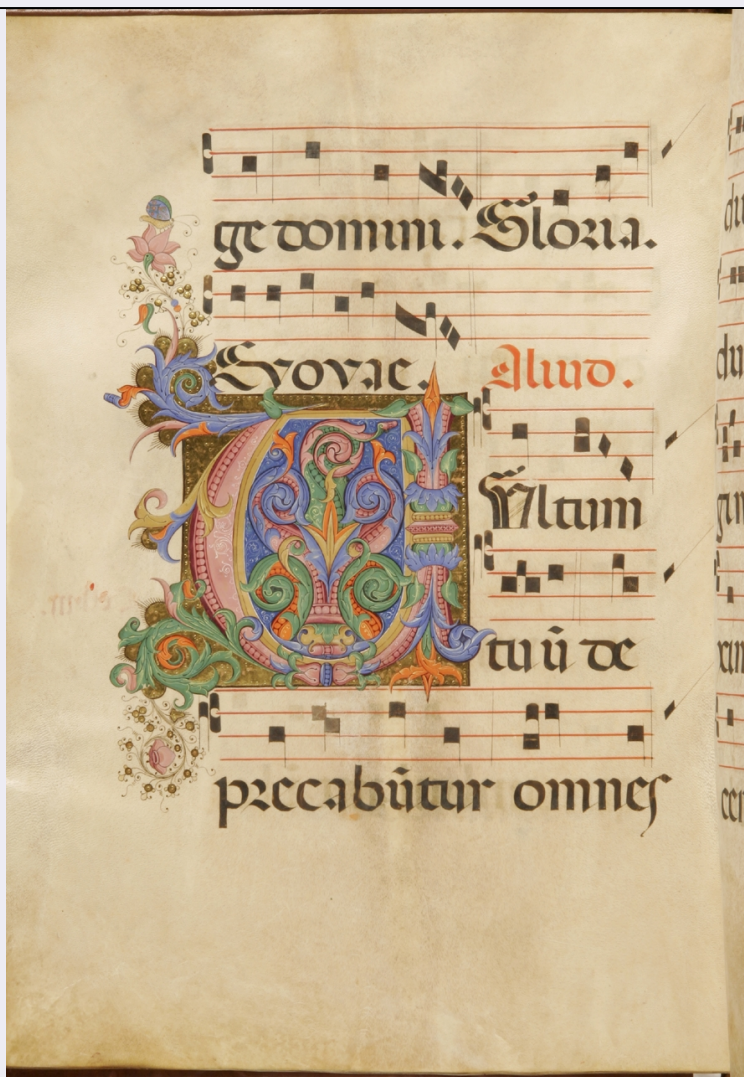 ge domini. Gloria.
Evovae. Aliud.
VUltum
tuũ de
precabũtur omnes